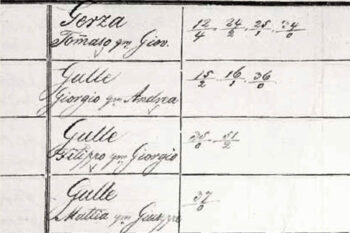 Gerza
Tommaso qm Giov. 12/4 . 24/2 . 25/1 . 34/0
Gulle
Giorgio qm Andrea 15/2 . 16/1 . 36/0
Gulle
Filippo qm Giorgio 35/0 . 51/2
Gulle
Mattia qm Giuseppe 37/0